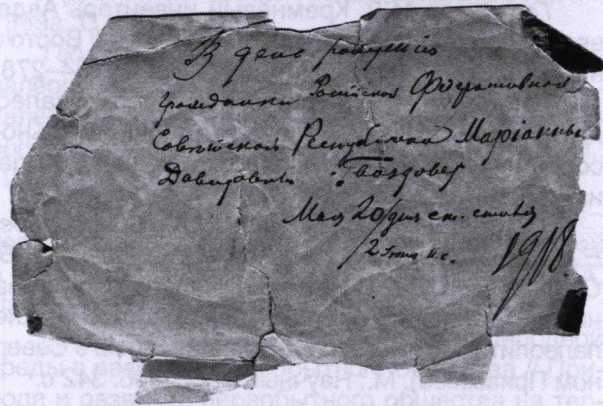 В день рожденія
гражданки Россійской Федеративной
Совѣтской Республики Маріанны
Давидовны Гвоздовер
Мая 20/дня ст. стиля
2 Іюня н.с. 1918.